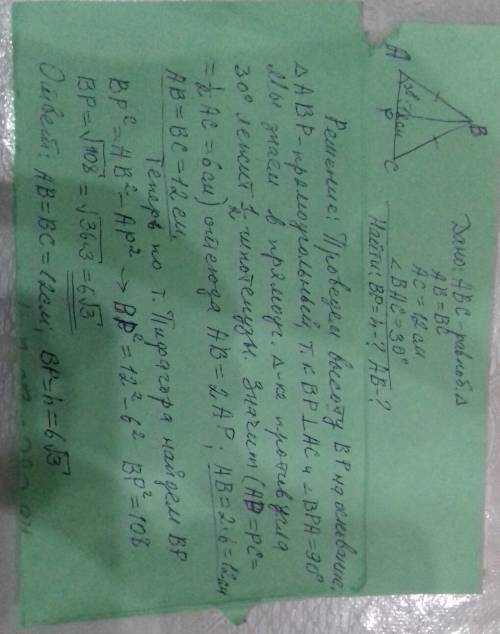 Дано: ABC - равноб. Δ
AB = BC
AC = 12 см
∠BAC = 30°
Найти: BP = h - ? AB - ?
A
B
C
P
30°
Решение: Проведем высоту BP на основание,
Δ ABP - прямоугольный, т.к BP ⊥ AC и ∠BPA = 90°
Мы знаем в прямоуг. Δ-ке против угла
30° лежит 1/2 гипотенузы. Значит (AP = PC =
= 1/2 AC = 6 см) отсюда AB = 2 AP, AB = 2·6 = 12 см
AB = BC = 12 см.
Теперь по т. Пифагора найдем BP
BP² = AB² - AP² → BP² = 12² - 6² BP² = 108
BP = √108 = √36·3 = 6√3
Ответ: AB = BC = 12 см, BP = h = 6√3